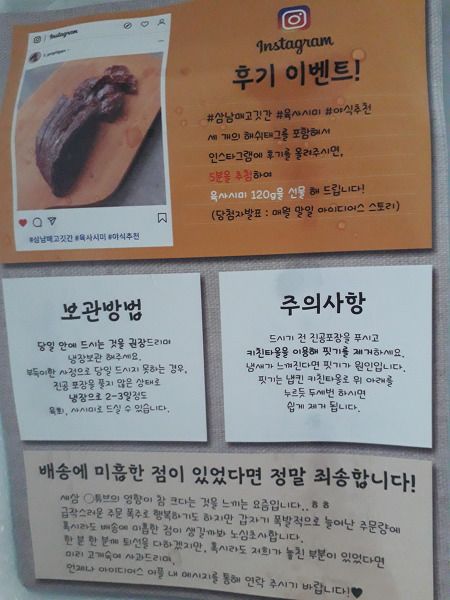 Instagram
Instagram
후기 이벤트!
#삼남매고깃간 #육사시미 #야식추천
세 개의 해쉬태그를 포함해서
인스타그램에 후기를 올려주시면,
5분을 추첨하여
육사시미 120g을 선물 해 드립니다!
(당첨자발표 : 매월 말일 아이디어스 스토리)
#삼남매고깃간 #육사시미 #야식추천
보관방법
당일 안에 드시는 것을 권장드리며
냉장보관 해주세요.
부득이한 사정으로 당일 드시지 못하는 경우,
진공 포장을 풀지 않은 상태로
냉장으로 2-3일정도
육회, 사시미로 드실 수 있습니다.
주의사항
드시기 전 진공포장을 푸시고
키친타올을 이용해 핏기를 제거하세요.
냄새가 느껴진다면 핏기가 원인입니다.
핏기는 냅킨 키친타올로 위 아래를
누르듯 두세번 하시면
쉽게 제거 됩니다.
배송에 미흡한 점이 있었다면 정말 죄송합니다!
세상 ◯튜브의 영향이 참 크다는 것을 느끼는 요즘입니다..ㅎㅎ
급작스러운 주문 폭주로 행복하기도 하지만 갑자기 폭발적으로 늘어난 주문량에
혹시라도 배송에 미흡한 점이 생길까봐 노심초사합니다.
한 분 한 분께 최선을 다하겠지만, 혹시라도 저희가 놓친 부분이 있었다면
미리 고개숙여 사과드리며,
언제나 아이디어스 어플 내 메시지를 통해 연락 주시기 바랍니다!♥